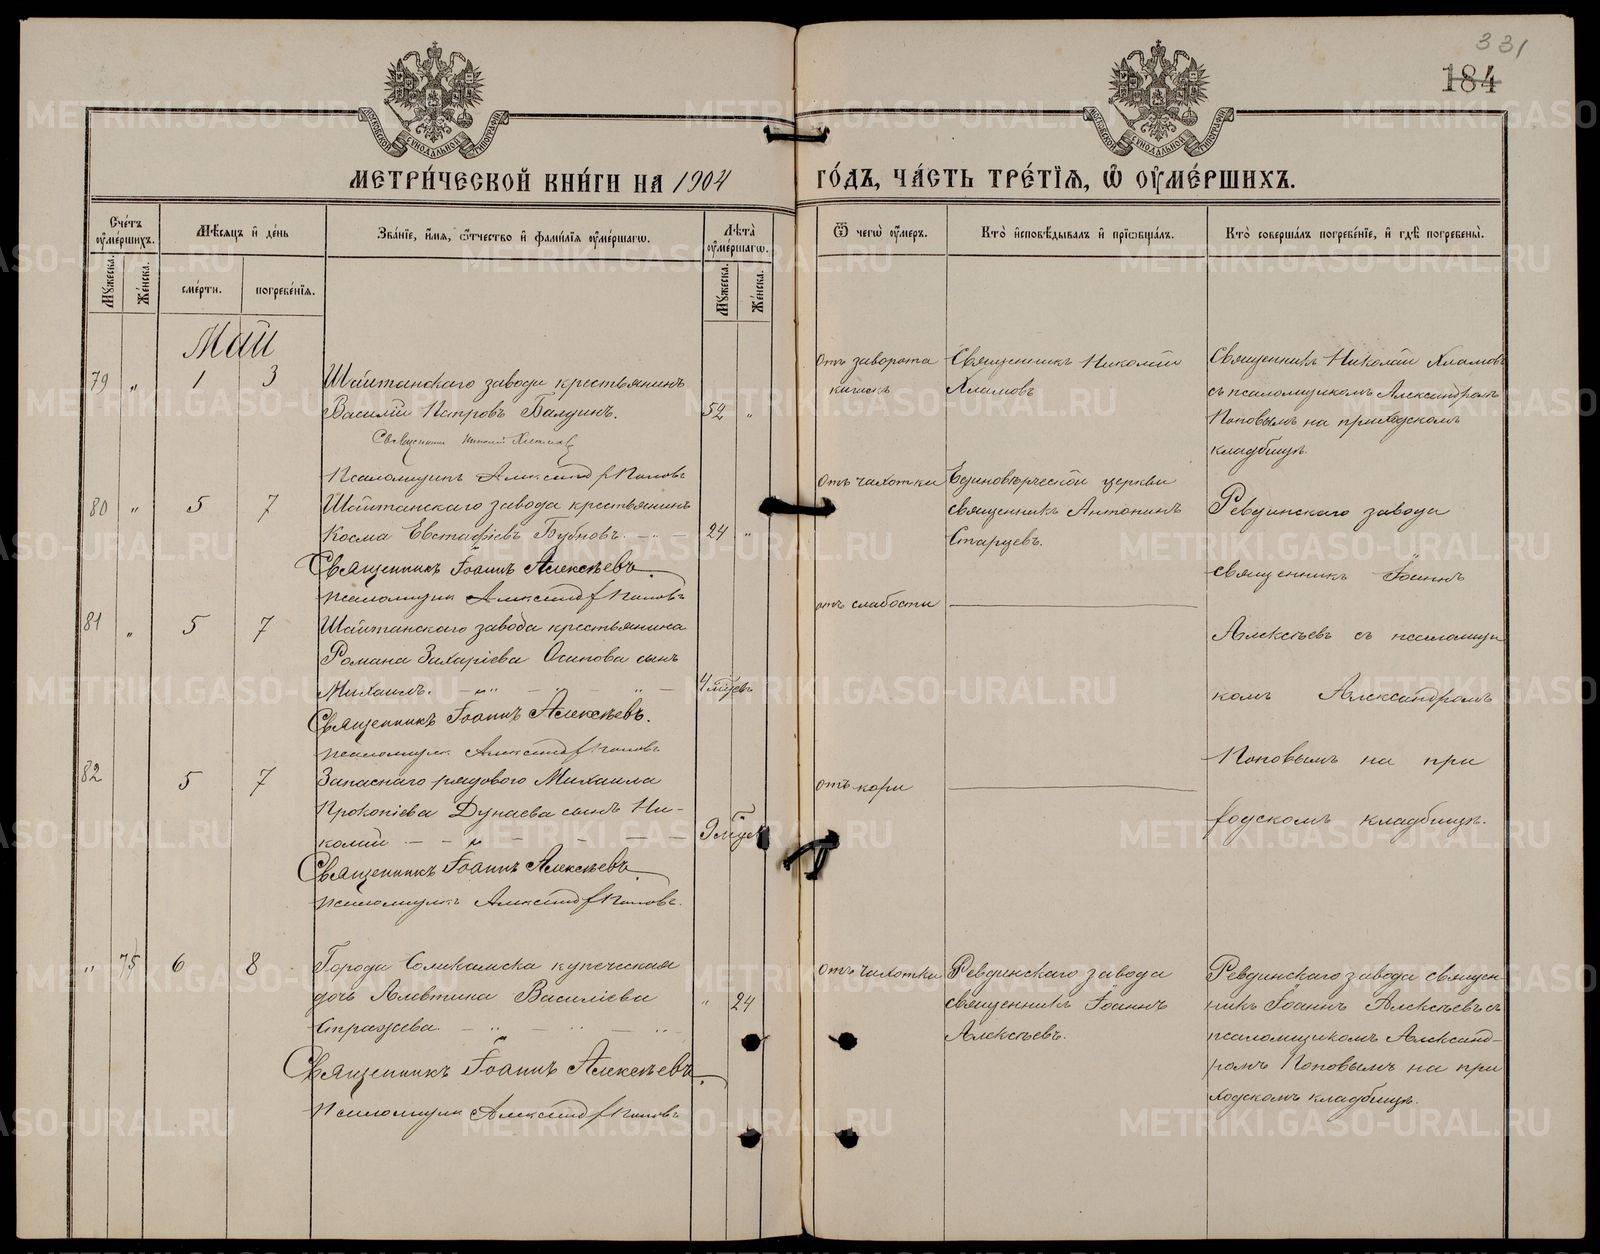 331
184
МОСКОВСКОЙ СѴНОДАЛЬНОЙ ТИПОГРАФІИ
МОСКОВСКОЙ СѴНОДАЛЬНОЙ ТИПОГРАФІИ
МЕТРИ́ЧЕСКОЙ КНИ́ГИ НА 1904 ГО́ДЪ, ЧА́СТЬ ТРЕ́ТІѦ, Ѡ҆ ОУ҆МЕ́РШИХЪ.
Сче́тъ оу҆ме́ршихъ.
Мꙋжеска.
Же́нска.
Мѣ́сѧцъ и҆ де́нь
сме́рти.
погребе́нїѧ.
Зва́нїе, и҆́мѧ, ѻ҆́тчество и҆ фами́лїѧ оу҆ме́ршагѡ.
Лѣ́та оу҆ме́ршагѡ.
Мꙋжеска.
Же́нска.
Ѿ чегѡ̀ оу҆́меръ.
Кто̀ и҆сповѣ́дывалъ и҆ прїѡбща́лъ.
Кто̀ соверша́лъ погребе́нїе, и҆ гдѣ̀ погребены̀.
Май
79 " 1 3
Шайтанскаго завода крестьянинъ
Василій Петровъ Балдинъ. 52 "
Священникъ Николай Хламовъ
Псаломщикъ Александръ Поповъ
отъ заворота
кишокъ
Священникъ Николай
Хламовъ
Священникъ Николай Хламовъ
съ псаломщикомъ Александромъ
Поповымъ на приходскомъ
кладбищѣ.
80 " 5 7
Шайтанскаго завода крестьянинъ
Косма Евстафіевъ Бубновъ. 24 "
Священникъ Іоаннъ Алексѣевъ.
Псаломщикъ Александръ Поповъ
отъ чахотки
Единовѣрческой церкви
священникъ Антонинъ
Старцевъ.
Ревдинскаго завода
священникъ Іоаннъ
Алексѣевъ съ псаломщи
комъ Александромъ
Поповымъ на при
ходскомъ кладбищѣ.
81 " 5 7
Шайтанскаго завода крестьянина
Романа Захаріева Осипова сынъ
Михаилъ. 4 мѣсяц.
Священникъ Іоаннъ Алексѣевъ.
Псаломщикъ Александръ Поповъ
отъ слабости
82 5 7
Запаснаго рядового Михаила
Прокопіева Дунаева сынъ Ни-
колай 9 мѣсяц.
Священникъ Іоаннъ Алексѣевъ.
Псаломщикъ Александръ Поповъ.
отъ кори
" 75 6 8
Города Соликамска купеческая
дочь Алевтина Василіева
Стражева. " 24
Священникъ Іоаннъ Алексѣевъ.
Псаломщикъ Александръ Поповъ
отъ чахотки
Ревдинскаго завода
священникъ Іоаннъ
Алексѣевъ.
Ревдинскаго завода священ-
никъ Іоаннъ Алексѣевъ съ
псаломщикомъ Александ-
ромъ Поповымъ на при
ходскомъ кладбищѣ.
METRIKI.GASO-URAL.RU